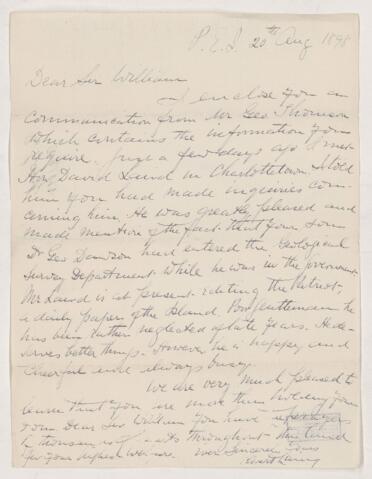 P.E.I. 20th Aug 1898
Dear Sir William
I enclose you a
communication from Mr Geo Thomson
which contains the information you
require. Just a few days ago I met
Hon. David Laird in Charlottetown. I told
him you had made inquiries con-
cerning him. He was greatly pleased and
made mention of the fact that your son
Dr Geo Dawson had entered the Geological
Survey Department while he was in the Government
Mr Laird is at present editing the Patriot
a daily paper of the Island. Poor gentleman he
has been rather neglected of late years. He de-
serves better things. However he is happy and
cheerful and always busy.
We are very much pleased to
learn that you are
Dear Sir William You have
throughout
for your highest welfare. Very Sincerely Yours